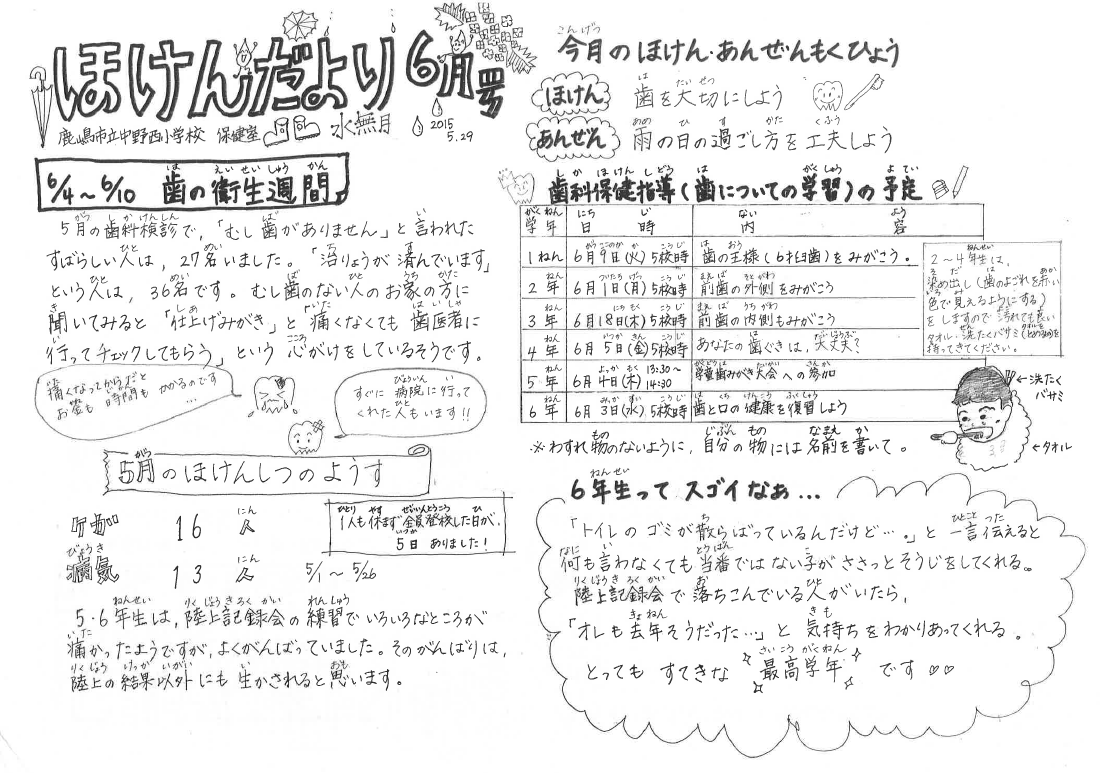 ほけんだより 6月号
鹿嶋市立中野西小学校 保健室 水無月
2015
5.29
6/4～6/10 歯の衛生週間
5月の歯科検診で、「むし歯がありません」と言われた
すばらしい人は、27名いました。「治りょうが済んでいます」
という人は、36名です。むし歯のない人のお家の方に
聞いてみると「仕上げみがき」と「痛くなくても歯医者に
行ってチェックしてもらう」という心がけをしているそうです。
痛くなってからだと
お金も時間もかかるのです
…
すぐに病院に行って
くれた人もいます!!
5月のほけんしつのようす
ケガ 16人
病気 13人 5/1～5/26
1人も休まず全員登校した日が、
5日ありました!
5・6年生は、陸上記録会の練習でいろいろなところが
痛かったようですが、よくがんばっていました。そのがんばりは、
陸上の結果以外にも生かされると思います。
今月のほけん・あんぜんもくひょう
ほけん 歯を大切にしよう
あんぜん 雨の日の過ごし方を工夫しよう
歯科保健指導(歯についての学習)の予定
学年 日時 内容
1ねん 6月9日(火)5校時 歯の王様(6才臼歯)をみがこう。
2年 6月1日(月)5校時 前歯の外側をみがこう
3年 6月18日(木)5校時 前歯の内側もみがこう
4年 6月5日(金)5校時 あなたの歯ぐきは、大丈夫?
5年 6月4日(木) 13:30～14:30 学童歯みがき大会への参加
6年 6月3日(水)5校時 歯と口の健康を復習しよう
2～4年生は、
染め出し(歯のよごれを赤い
色で見えるようにする)
をしますので汚れても良い
タオル・洗たくバサミ
持ってきてください。
←洗たく
バサミ
←タオル
※わすれ物のないように、自分の物には名前を書いて。
6年生って スゴイなぁ…
「トイレのゴミが散らばっているんだけど…。」と一言伝えると
何も言わなくても当番ではない子がささっとそうじをしてくれる。
陸上記録会で落ちこんでいる人がいたら、
「オレも去年そうだった…」と気持ちをわかりあってくれる。
とってもすてきな 最高学年 です♡♡